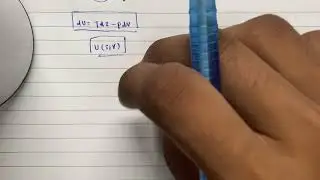 dU = TdS - PdV
U(S,V)